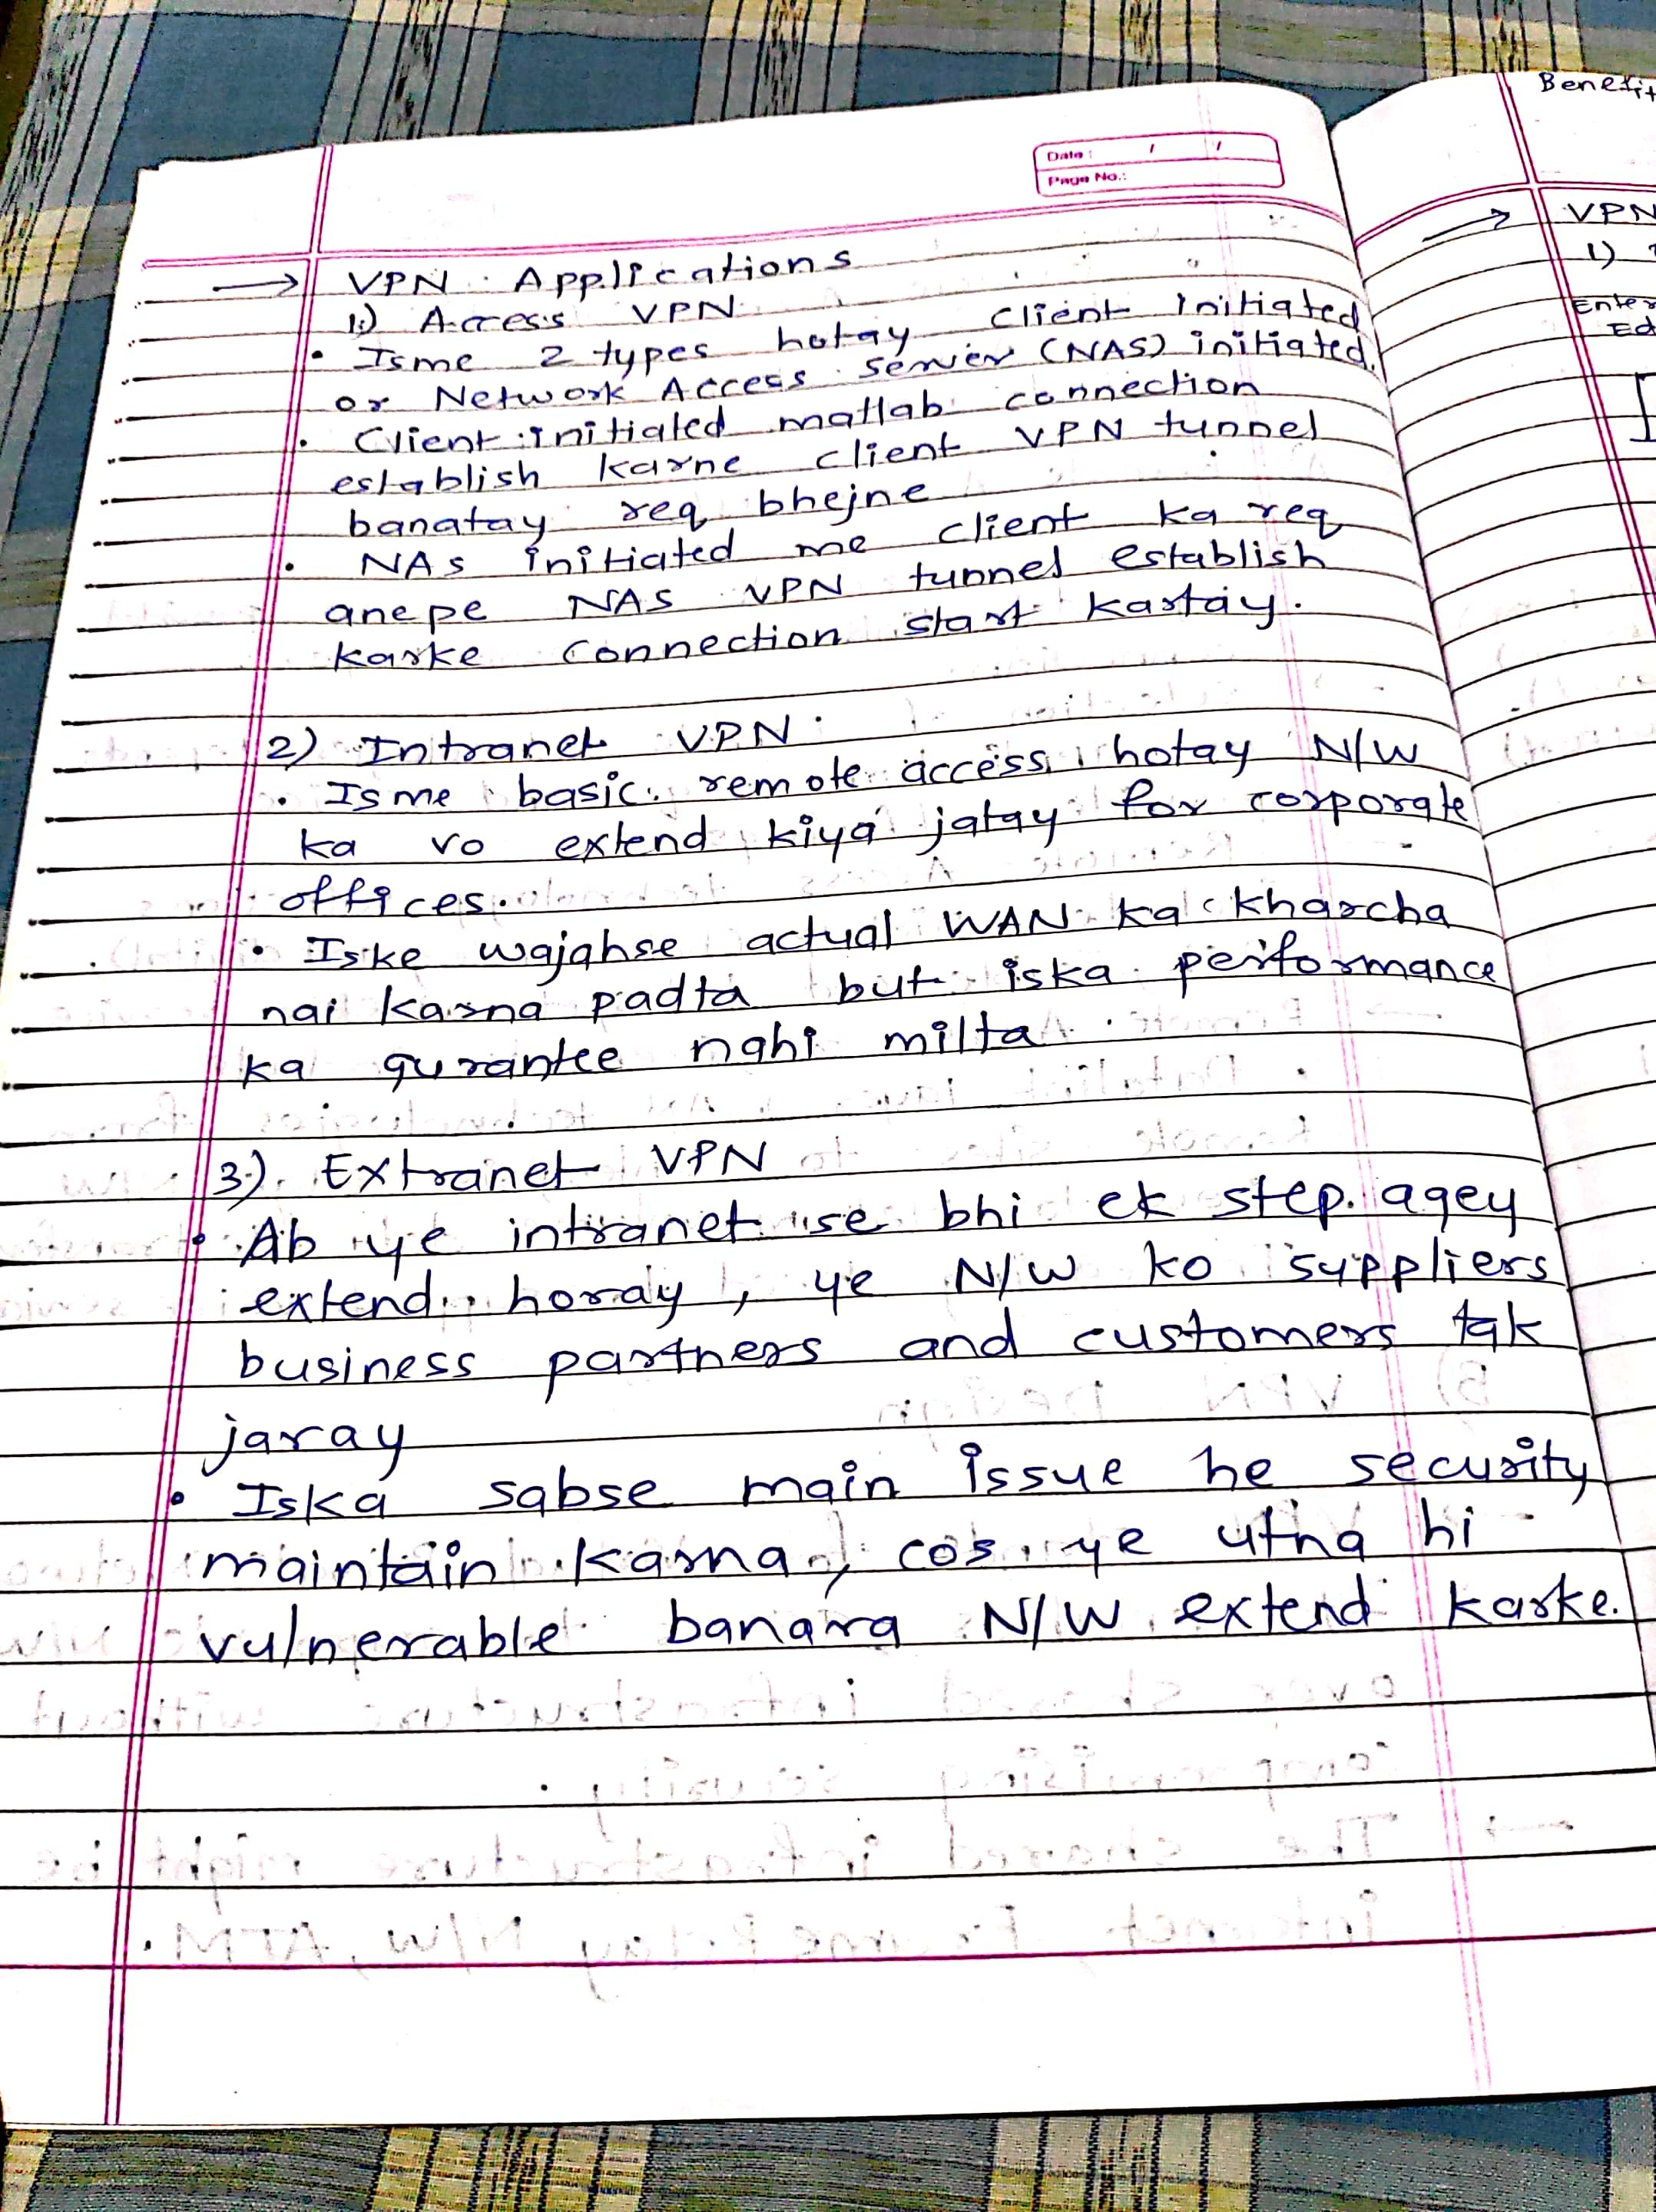 Date : / /
Page No.:
→ VPN Applications
1) Access VPN
• Isme 2 types hotay client initiated
or Network Access server (NAS) initiated.
• Client initiated matlab connection
establish karne client VPN tunnel
banatay req bhejne
• NAS initiated me client ka req
anepe NAS VPN tunnel establish
karke connection start kartay.
2) Intranet VPN
• Isme basic remote access hotay N/W
ka vo extend kiya jatay for corporate
offices.
• Iske wajahse actual WAN ka kharcha
nai karna padta but iska performance
ka gurantee nahi milta
3) Extranet VPN
• Ab ye intranet se bhi ek step agey
extend horay, ye N/W ko suppliers
business partners and customers tak
jaray
• Iska sabse main issue he security
maintain karna, cos ye utna hi
vulnerable banara N/W extend karke.
Benefit
→ VPN
1)
Enter
Ed